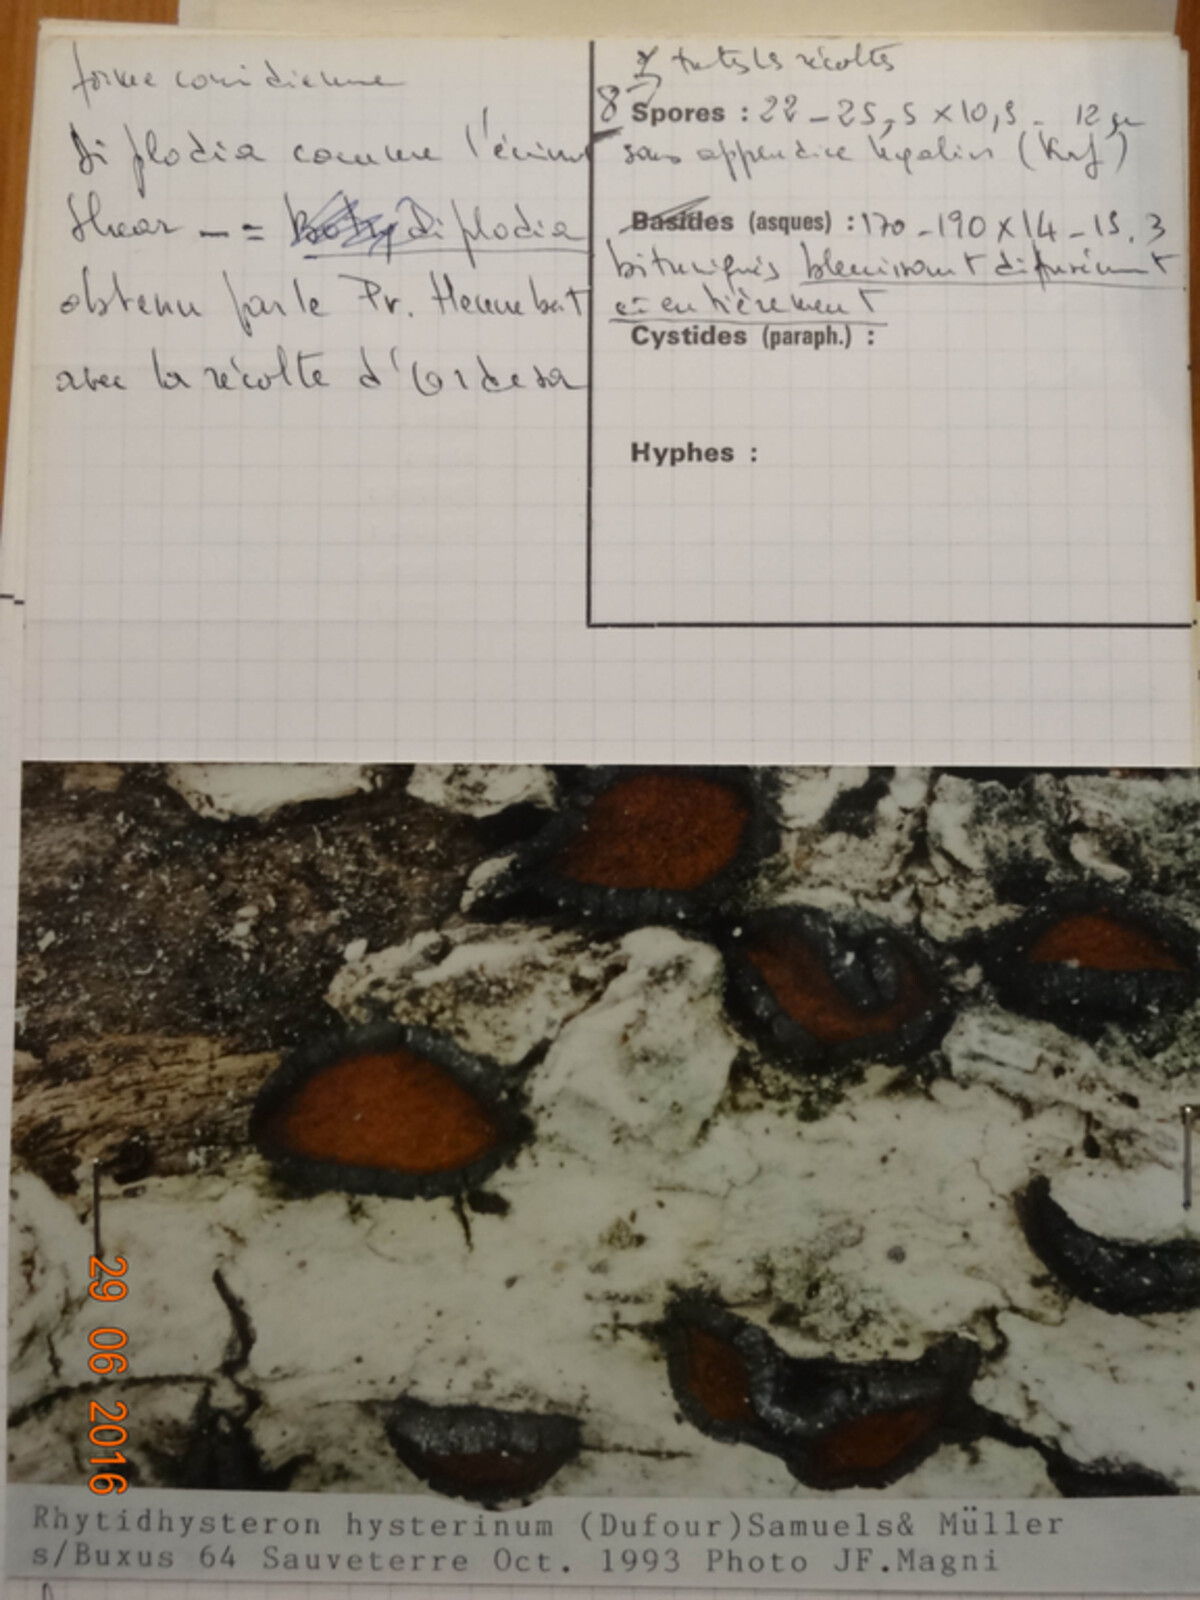 forme conidienne
Diplodia comme l'écrivit
Shear — = Diplodia
obtenu par le Pr. Hennebert
avec la récolte d'Ordesa
toutes les récoltes
8
Spores : 22 - 25,5 × 10,5 - 12 µ
sans appendice hyalin (KOH)
Basides (asques) : 170 - 190 × 14 - 15.3
bituniqués bleuissant diffusément
et entièrement
Cystides (paraph.) :
Hyphes :
29 06 2016
Rhytidhysteron hysterinum (Dufour)Samuels& Müller
s/Buxus 64 Sauveterre Oct. 1993 Photo JF.Magni